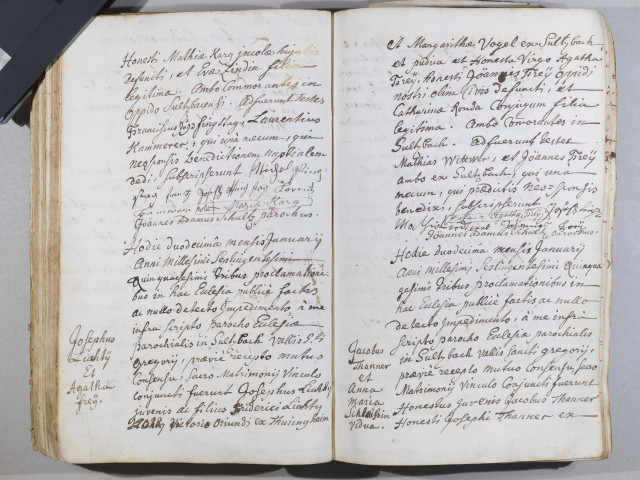 Honesti Mathiæ Karg incolæ hujatis
defuncti, et Evæ Lindin filia
legitima. Ambo Commorantes in
Oppido Sultzbacensi. Adfuerunt testes
Franciscus
Laurentius
Kammerer, qui una mecum, qui
neosponsis benedictionem nuptialem
dedi, subscripserunt
Maria Karg
Joannes Adamus Schultz parochus.
Hodie duodecimâ mensis Januarij
Anni Millesimi Septingentesimi
Quinquagesimi tribus proclamationi-
bus in hac Eclesia publicè factis
ac nullo detecto Impedimento, à me
infra scripto parocho Eclesiæ
parochialis in Sultzbach Vallis S.ti
Gregorij, præviè recepto mutuo
Consensu, Sacro Matrimonij Vinculo
Conjuncti fuerunt Josephus Lichty
juvenis ac filius Friderici Lichty
Victoria Oriundi ex Thuringheim
Josephus
Lichty
et
Agatha
Freÿ.
et Margarithæ Vogel ex Sultzbach,
et pudica et Honesta Virgo Agatha
Freÿ, Honesti Joannis Freÿ Oppidi
nostri olim Civis defuncti, et
Catharinæ Konda Conjugum filia
legitima. Ambo Comorantes in
Sultzbach. Adfuerunt testes
Mathias Witmer, et Joannes Freÿ
Ambo ex Sultzbach, qui una
mecum, qui prædictis Neo-sponsis
benedixi, subscripserunt
Joannes Adamus Schultz parochus.
Hodie duodecima mensis Januarij
Anni Millesimi Septingentesimi Quinqua
gesimi tribus proclamationibus in
hac Eclesia publicè factis ac nullo
detecto Impedimento, à me infra
scripto parocho Eclesiæ parochialis
in Sultzbach Vallis Sancti Gregorij,
præviè recepto mutuo Consensu, Sacro
Matrimonij Vinculo Conjuncti fuerunt
Honestus Juvenis Jacobus Thanner
Honesti Josephi Thanner ex
Jacobus
Thanner
et
Anna
Maria
Vidua.